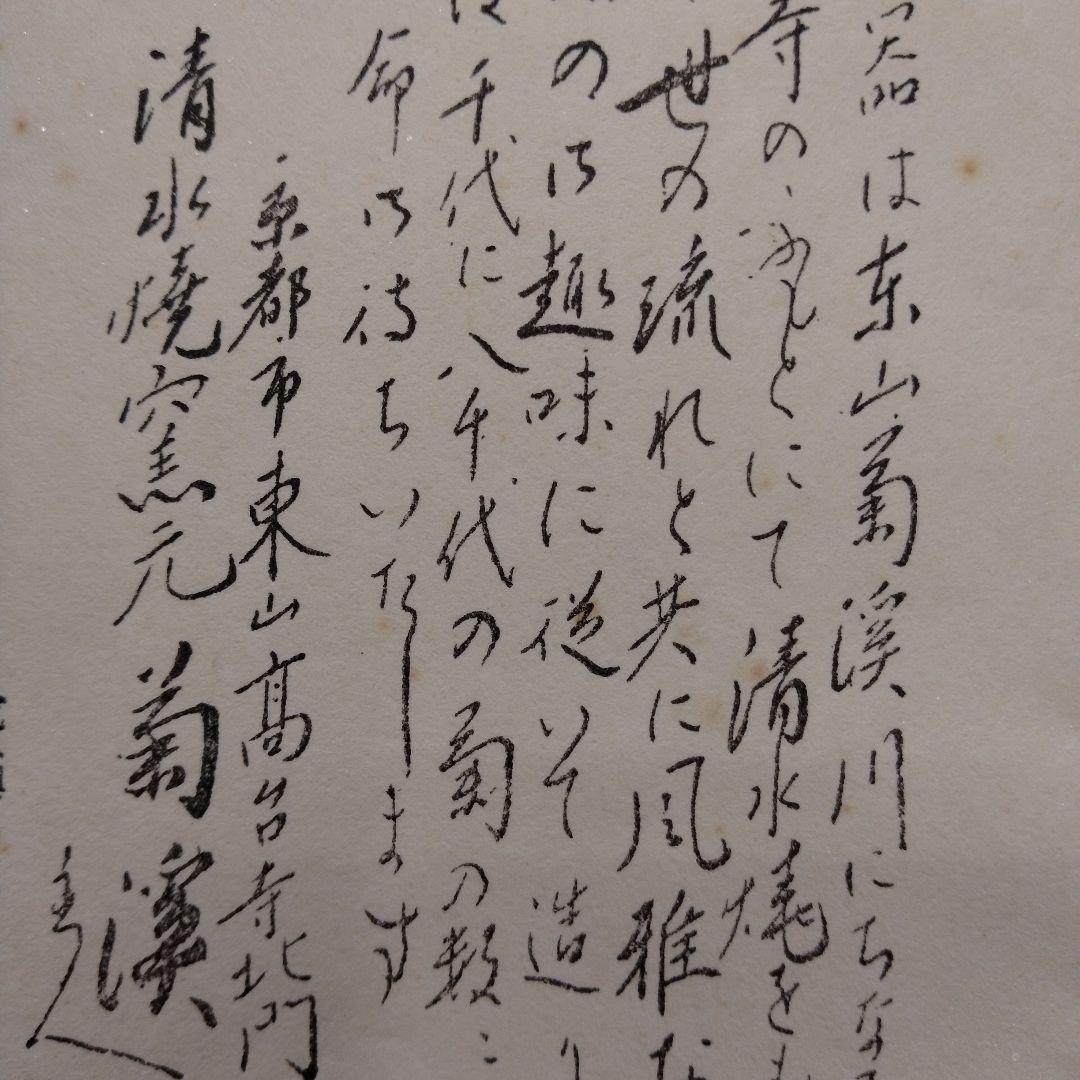 器は東山菊溪川にちなみ
寺のふもとにて清水焼をも
世の流れと共に風雅な
の御趣味に従いて造り
千代に八千代の菊の数々
命御待ちいたします
京都市東山高台寺北門
清水燒穴窯元 菊溪